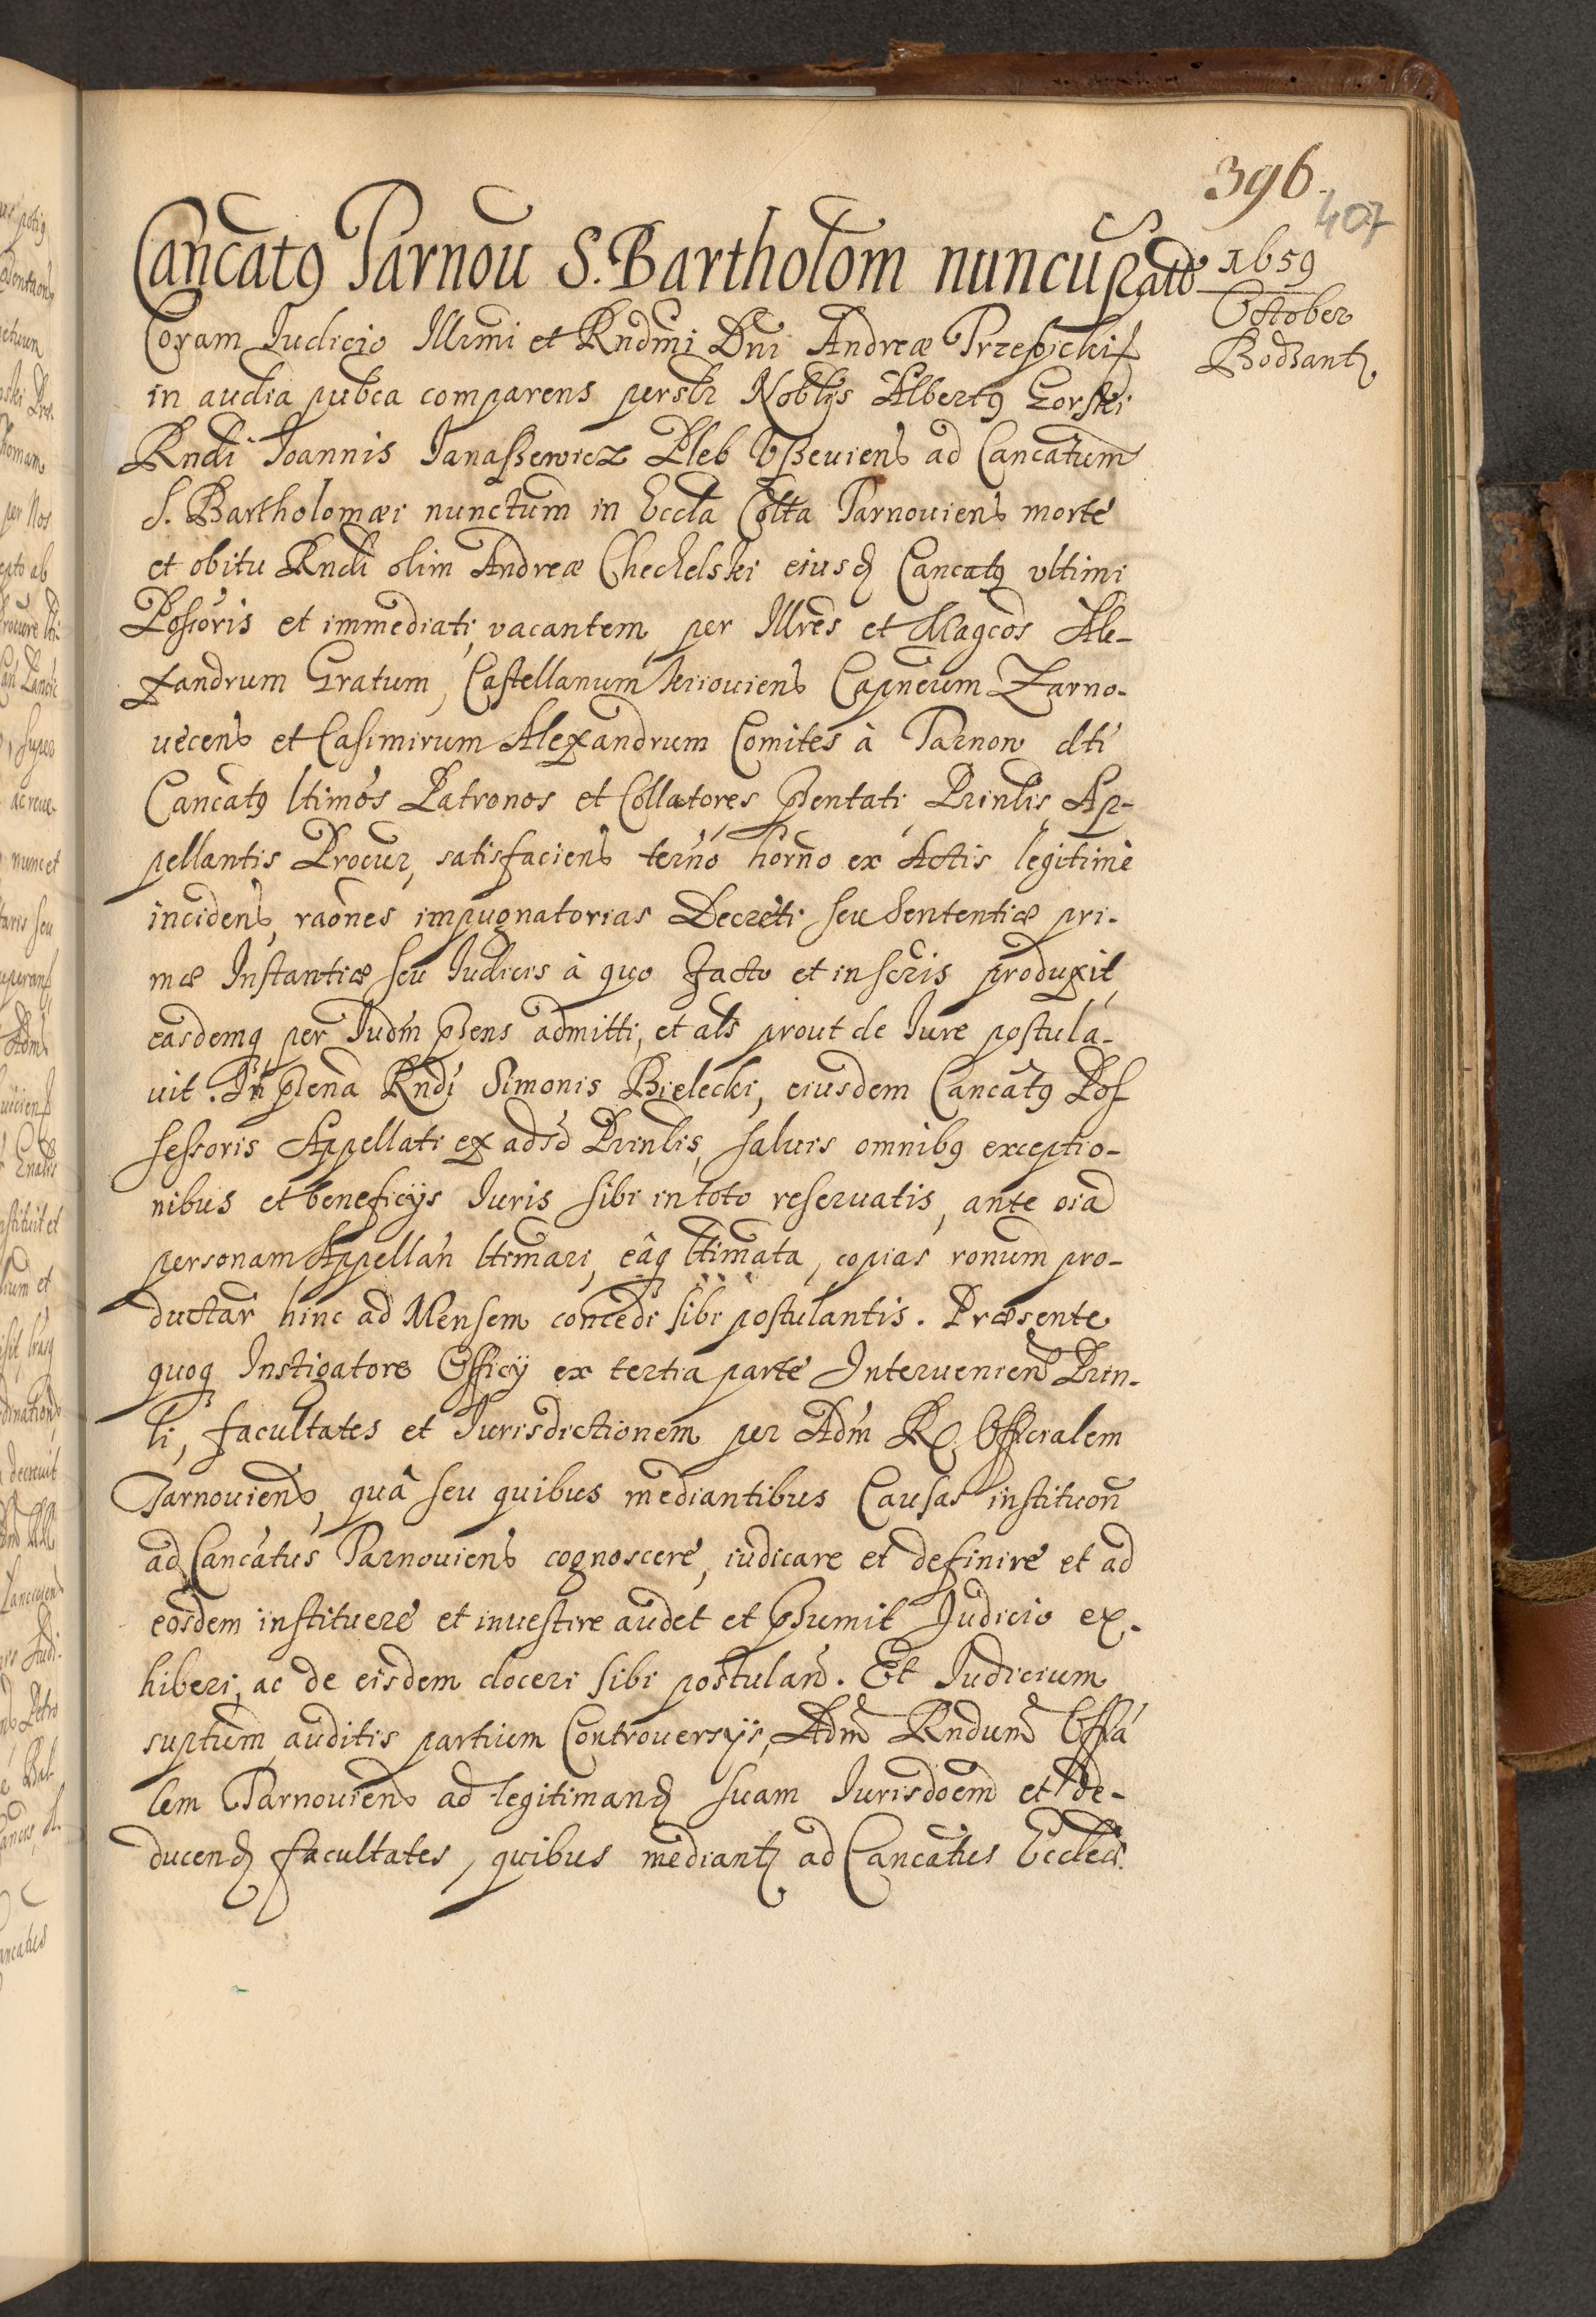 396.
407
1659
October
Bodzant
Cancatq Tarnou S. Bartholom nuncupato
Coram Iudicio Illrmi et Rndmi Dni Andreæ
in audia pubca comparens persltr Noblis Albertq Gorski
Rndi Ioannis Janaszewicz Pleb Vszeuiens ad Cancatum
S. Bartholomæi nunctum in Eccla Collta Tarnouiens morte
et obitu Rndi olim Andreæ Chechelski eiusd Cancatq vltimi
Possoris et immediati vacantem, per Illres et Magcos Ale-
xandrum Gratum, Castellanum Capneum Zarno-
uecens et Casimirum Alexandrum Comites à Tarnow dti
Cancatq ltimos Patronos et Collatores pñtati Prinlis, Ap-
pellantis Procur, satisfaciens termo horno ex Actis legitime
incidens, raones impugnatorias Decreti seu Sententiæ pri-
mæ Instantiæ seu Iudicis à quo facto et in scris produxit,
easdemq per Iudm pñens admitti, et als prout de Iure postula-
uit. In pñena Rndi Simonis Bielecki, eiusdem Cancatq Pos
sessoris Appellati ex adso Prinlis, saluis omnibq exceptio-
nibus et beneficijs Iuris sibi in toto reseruatis, ante oia
personam Appellan ltimari, eaq ltimata, copias ronum pro-
ductar hinc ad Mensem concedi sibi postulantis. Præsente
quoq Instigatore Officij ex tertia parte Interuenien Prin-
li, facultates et Iurisdictionem per Adm R. Officialem
Tarnouiens, quâ seu quibus mediantibus Causas instituton
ad Cancatus Tarnouiens cognoscere, iudicare et definire et ad
eosdem instituere et inuestire audet et pñsumit Iudicio ex-
hiberi, ac de eisdem doceri sibi postulan. Et Iudicium
suptum, auditis partium Controuersijs, Adm Rndum Offia
lem Tarnouiens ad legitimand suam Iurisdoem et de-
ducend facultates, quibus mediant ad Cancatus Eccleæ